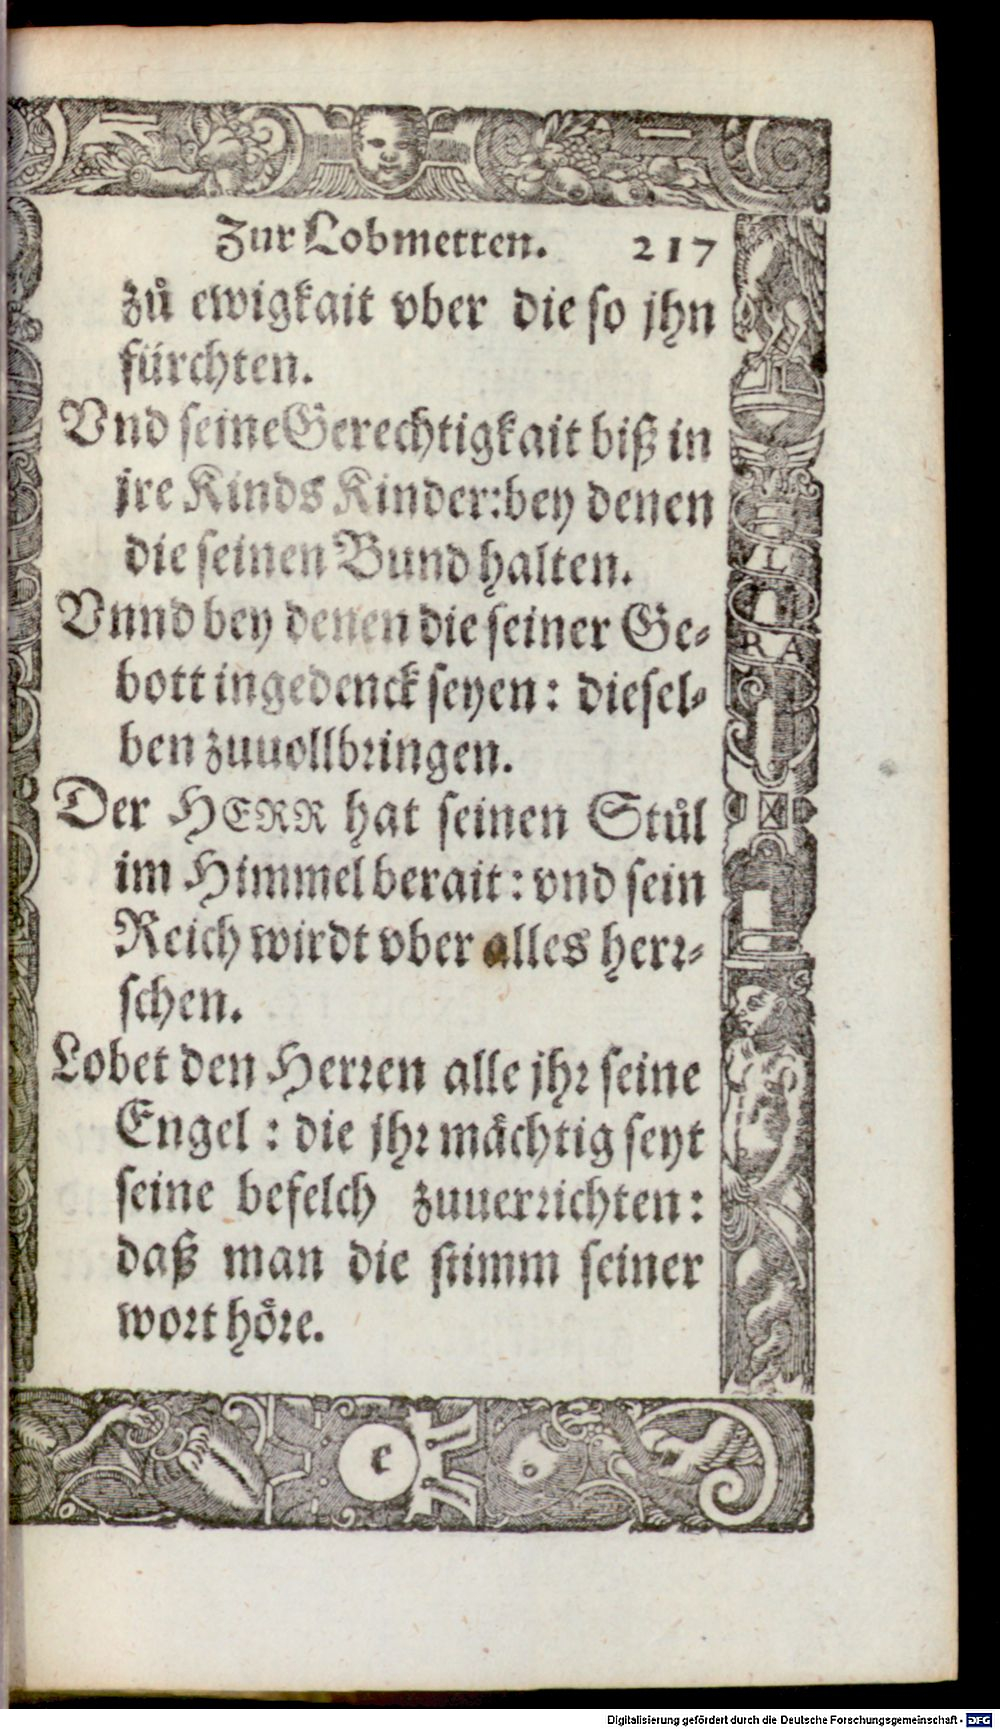 Zur Lobmetten. 217
zů ewigkait vber die so jhn
fürchten.
Vnd seine Gerechtigkait biß in
jre Kinds Kinder: bey denen
die seinen Bund halten.
Vnnd bey denen die seiner Ge-
bott ingedenck seyen: diesel-
ben zuuollbringen.
Der HERR hat seinen Stůl
im Himmel berait: vnd sein
Reich wirdt vber alles herr-
schen.
Lobet den Herren alle jhr seine
Engel: die jhr mächtig seyt
seine befelch zuuerrichten:
daß man die stimm seiner
wort höre.
L
RA
e
Digitalisierung gefördert durch die Deutsche Forschungsgemeinschaft - DFG